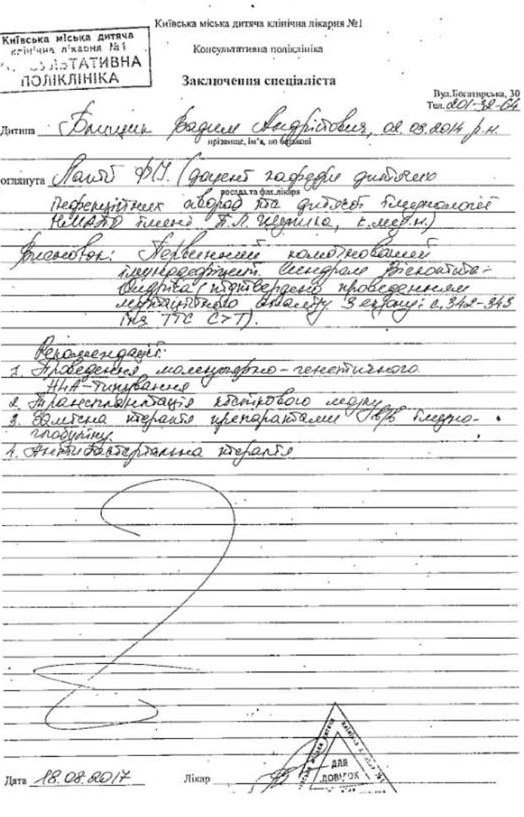 Київська міська дитяча клінічна лікарня №1
Київська міська дитяча
клінічна лікарня №1
КОНСУЛЬТАТИВНА
ПОЛІКЛІНІКА
Консультативна поліклініка
Заключення спеціаліста
Вул.Богатирська, 30
Тел. 201-32-04
Дитина Вадим Андрійович, 02.03.2014 р.н.
прізвище, ім'я, по батькові
оглянута ф.І. (доцент кафедри дитячих
посада та фах лікаря
інфекційних хвороб та дитячої імунології
НМАПО імені П.Л. Шупика, к.мед.н)
Висновок: Первинний комбінований
імунодефіцит. Синдром Віскотта-
Олдріча (підтверджено проведенням
мутаційного аналізу 3 екзону: c.342-343
ins TTC C>T).
Рекомендації:
1. Проведення молекулярно-генетичного
HLA-типування
2. Трансплантація кісткового мозку
3. Замісна терапія препаратами імуно-
глобуліну.
4. Антибактеріальна терапія
Дата 18.08.2017 Лікар
ДЛЯ
ДОВІДОК